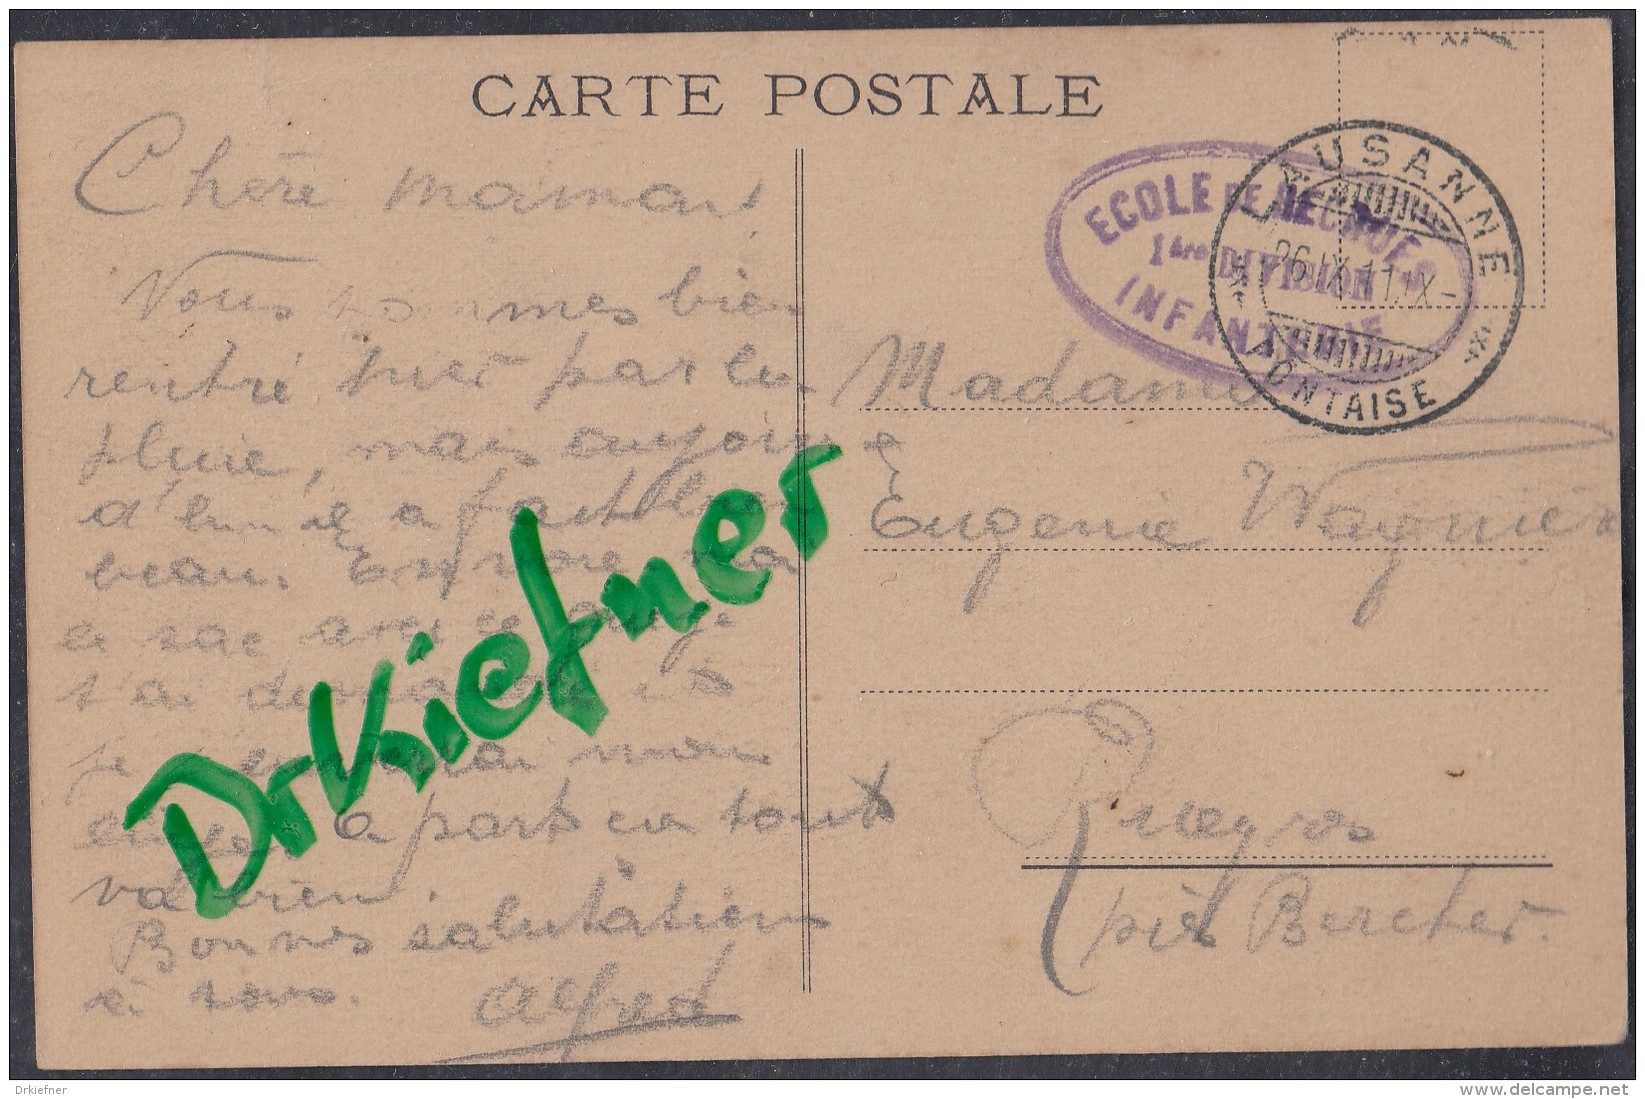 CARTE POSTALE
Chère maman
Nous sommes bien
rentré hier par la
pluie, mais aujour
d'hui il a fait bien
beau. Envoie
ce sac avec ce
je
a part ça tout
va bien
Bonnes salutations
à tous.
Alfred
ECOLE DE RECRUES
1ère DIVISION
INFANTERIE
LAUSANNE
26.IX.11.IX-
PONTAISE
Madame
Eugenie Wagnier
Rueyres
près Bercher.
DrKiefner
Drkiefner
delcampe.net